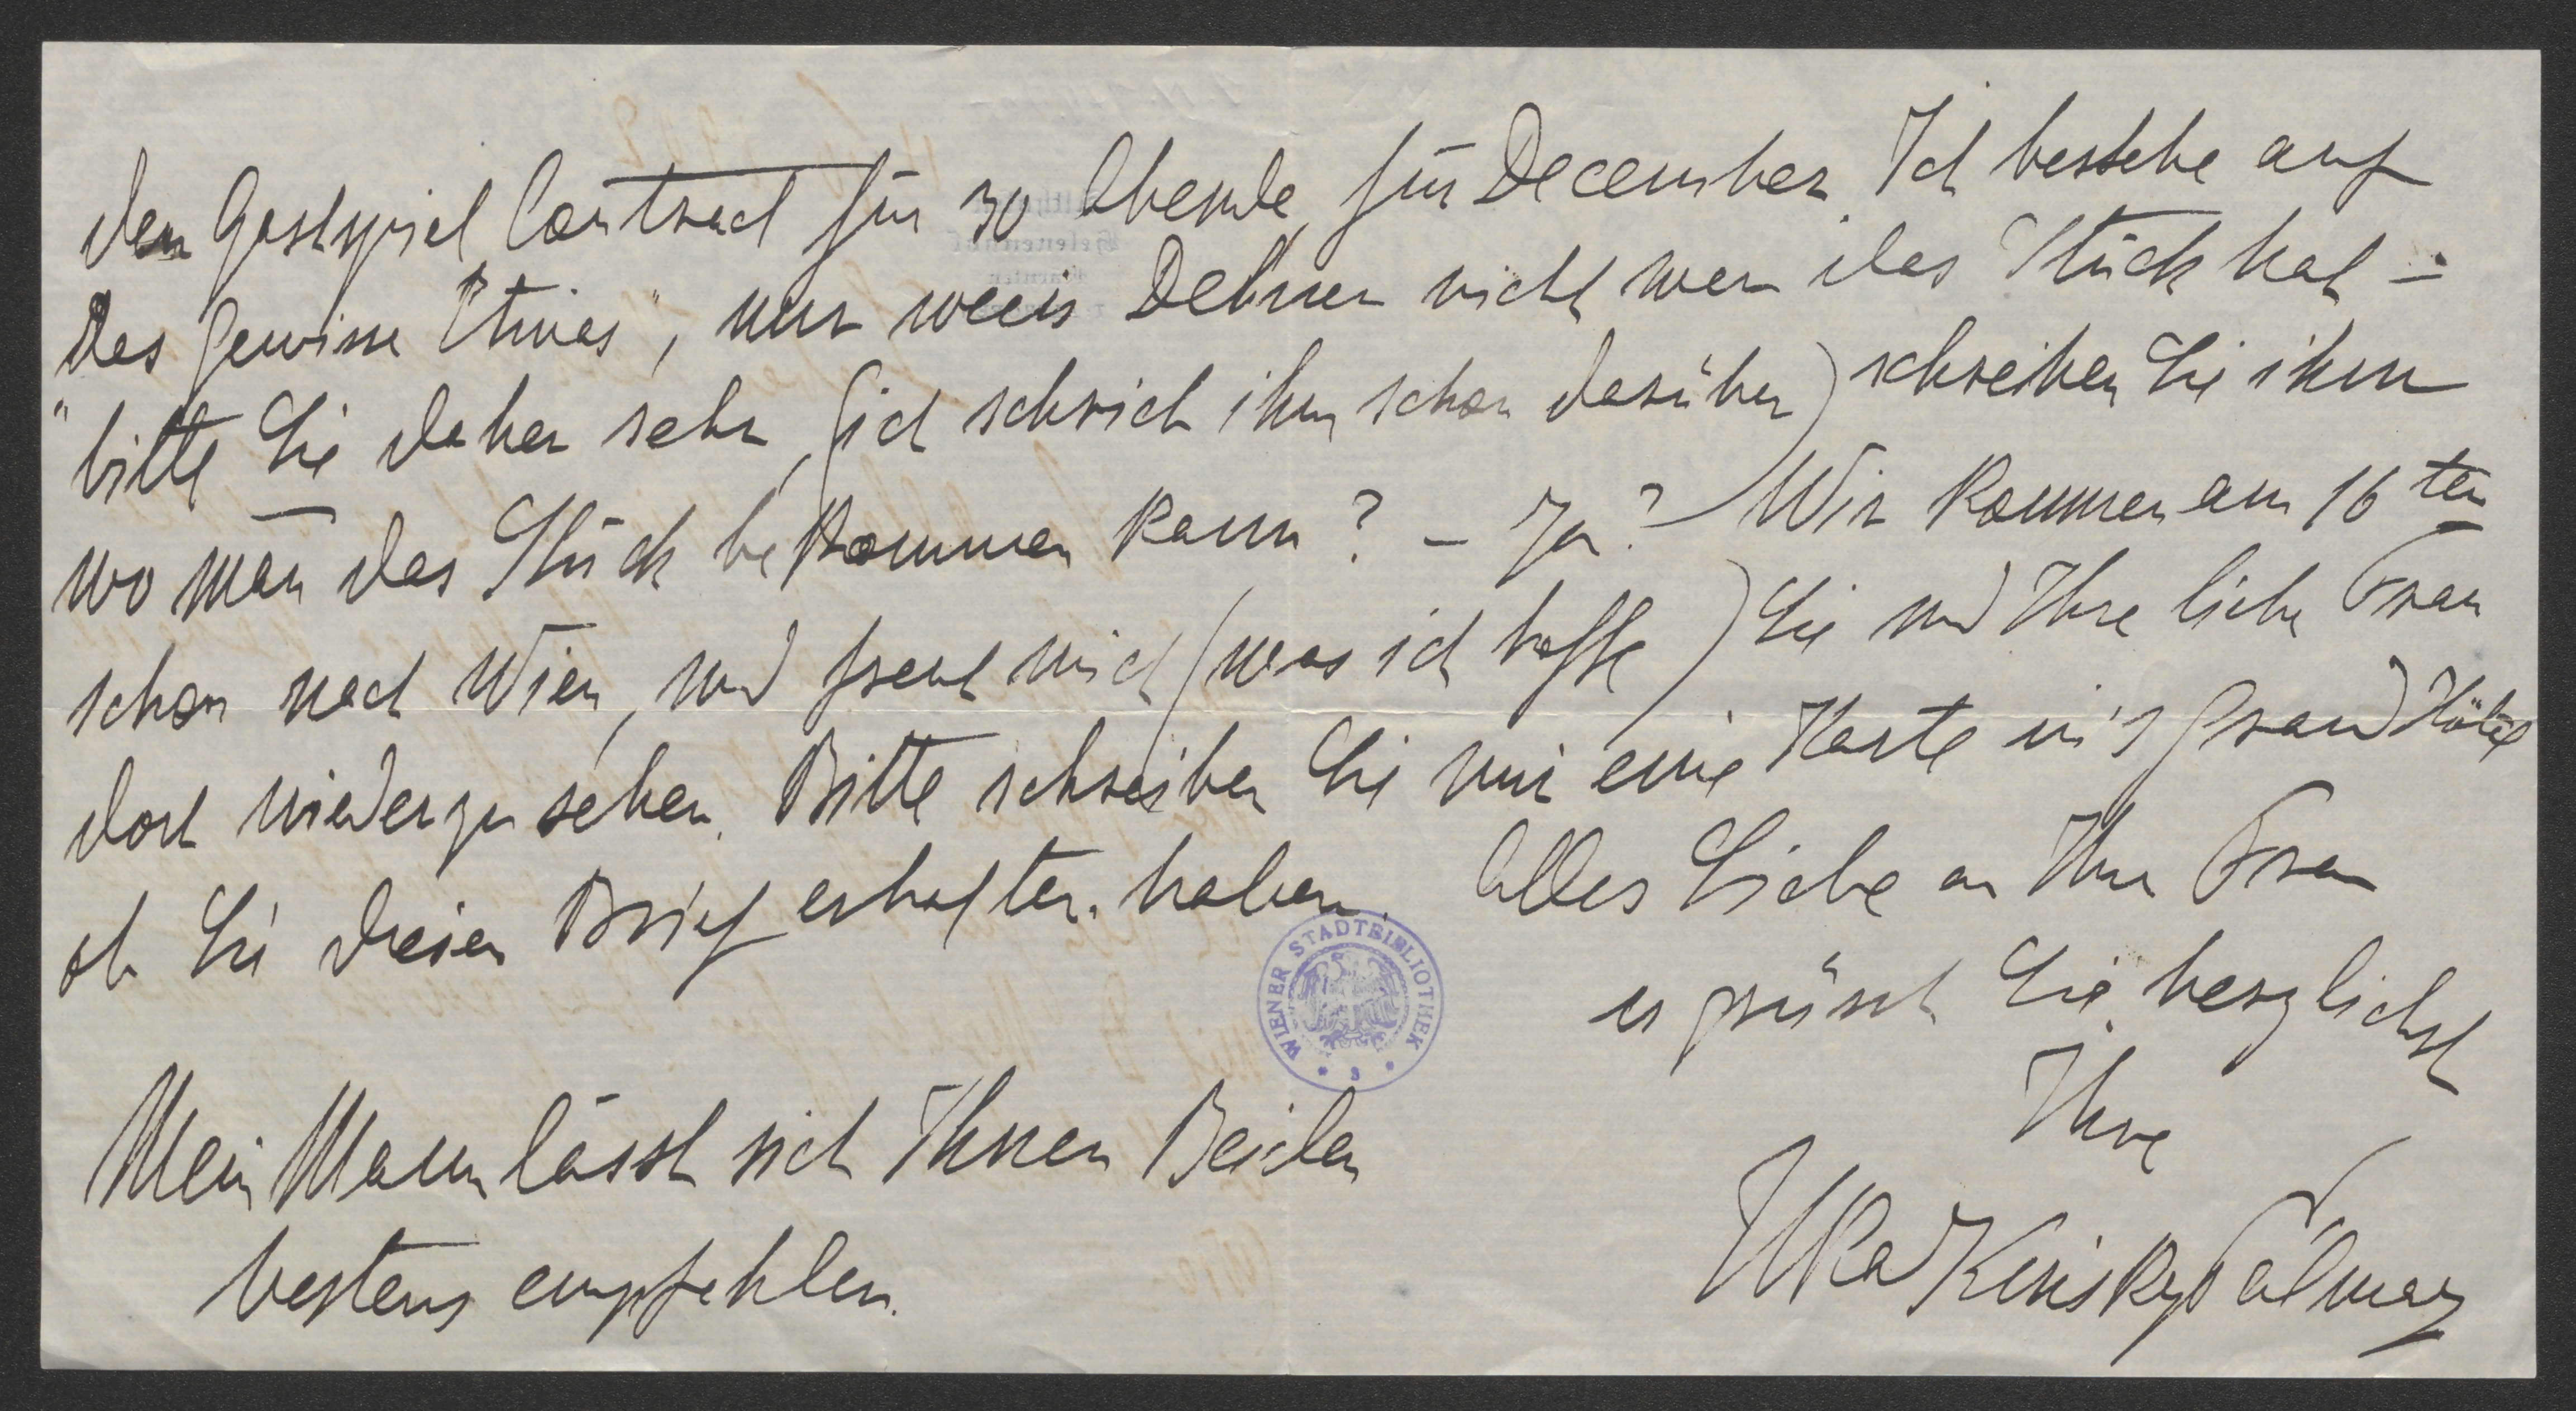 den Gastspiel Contract für 30 Abende, für December. Ich bestehe auf
"Das gewisse Etwas", nur weis Debner nicht wer das Stück hat –
"bitte Sie daher sehr, (ich schrieb ihm schon darüber) schreiben Sie ihm
wo man das Stück bekommen kann? – Ja? – Wir kommen am 16ten
schon nach Wien, und freut mich (was ich hoffe) Sie und Ihre liebe Frau
dort wiederzusehen. Bitte schreiben Sie mir eine Karte in's Grand Hôtel
ob Sie diesen Brief erhalten haben. Alles Liebe an Ihre Frau
u grüsst Sie herzlichst
Ihre
Ilka Kinsky Pálmay
Mein Mann lässt sich Ihnen Beiden
bestens empfehlen.
WIENER STADTBIBLIOTHEK